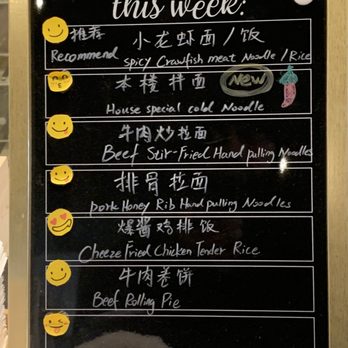 this week:
推荐 小龙虾面/饭
Recommend spicy Crawfish meat Noodle/Rice
本楼拌面 New
House special cold Noodle
牛肉炒拉面
Beef Stir-Fried Hand pulling Noodles
排骨拉面
pork Honey Rib Hand pulling Noodles
爆酱鸡排饭
Cheeze Fried Chicken Tender Rice
牛肉卷饼
Beef Rolling Pie